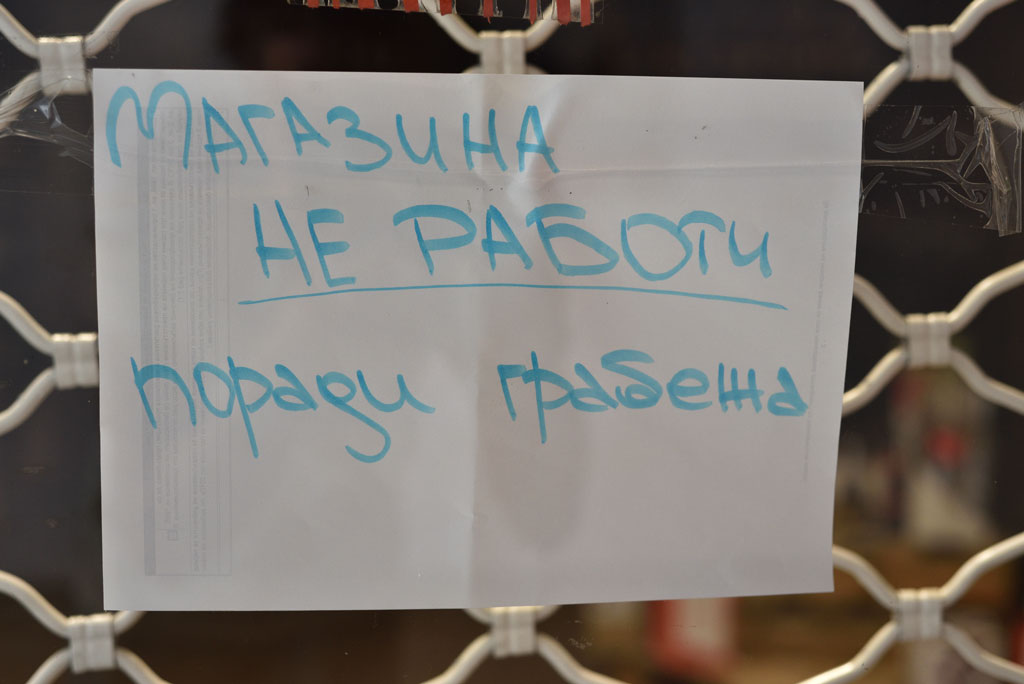 МАГАЗИНА
НЕ РАБОТИ
поради грабежа